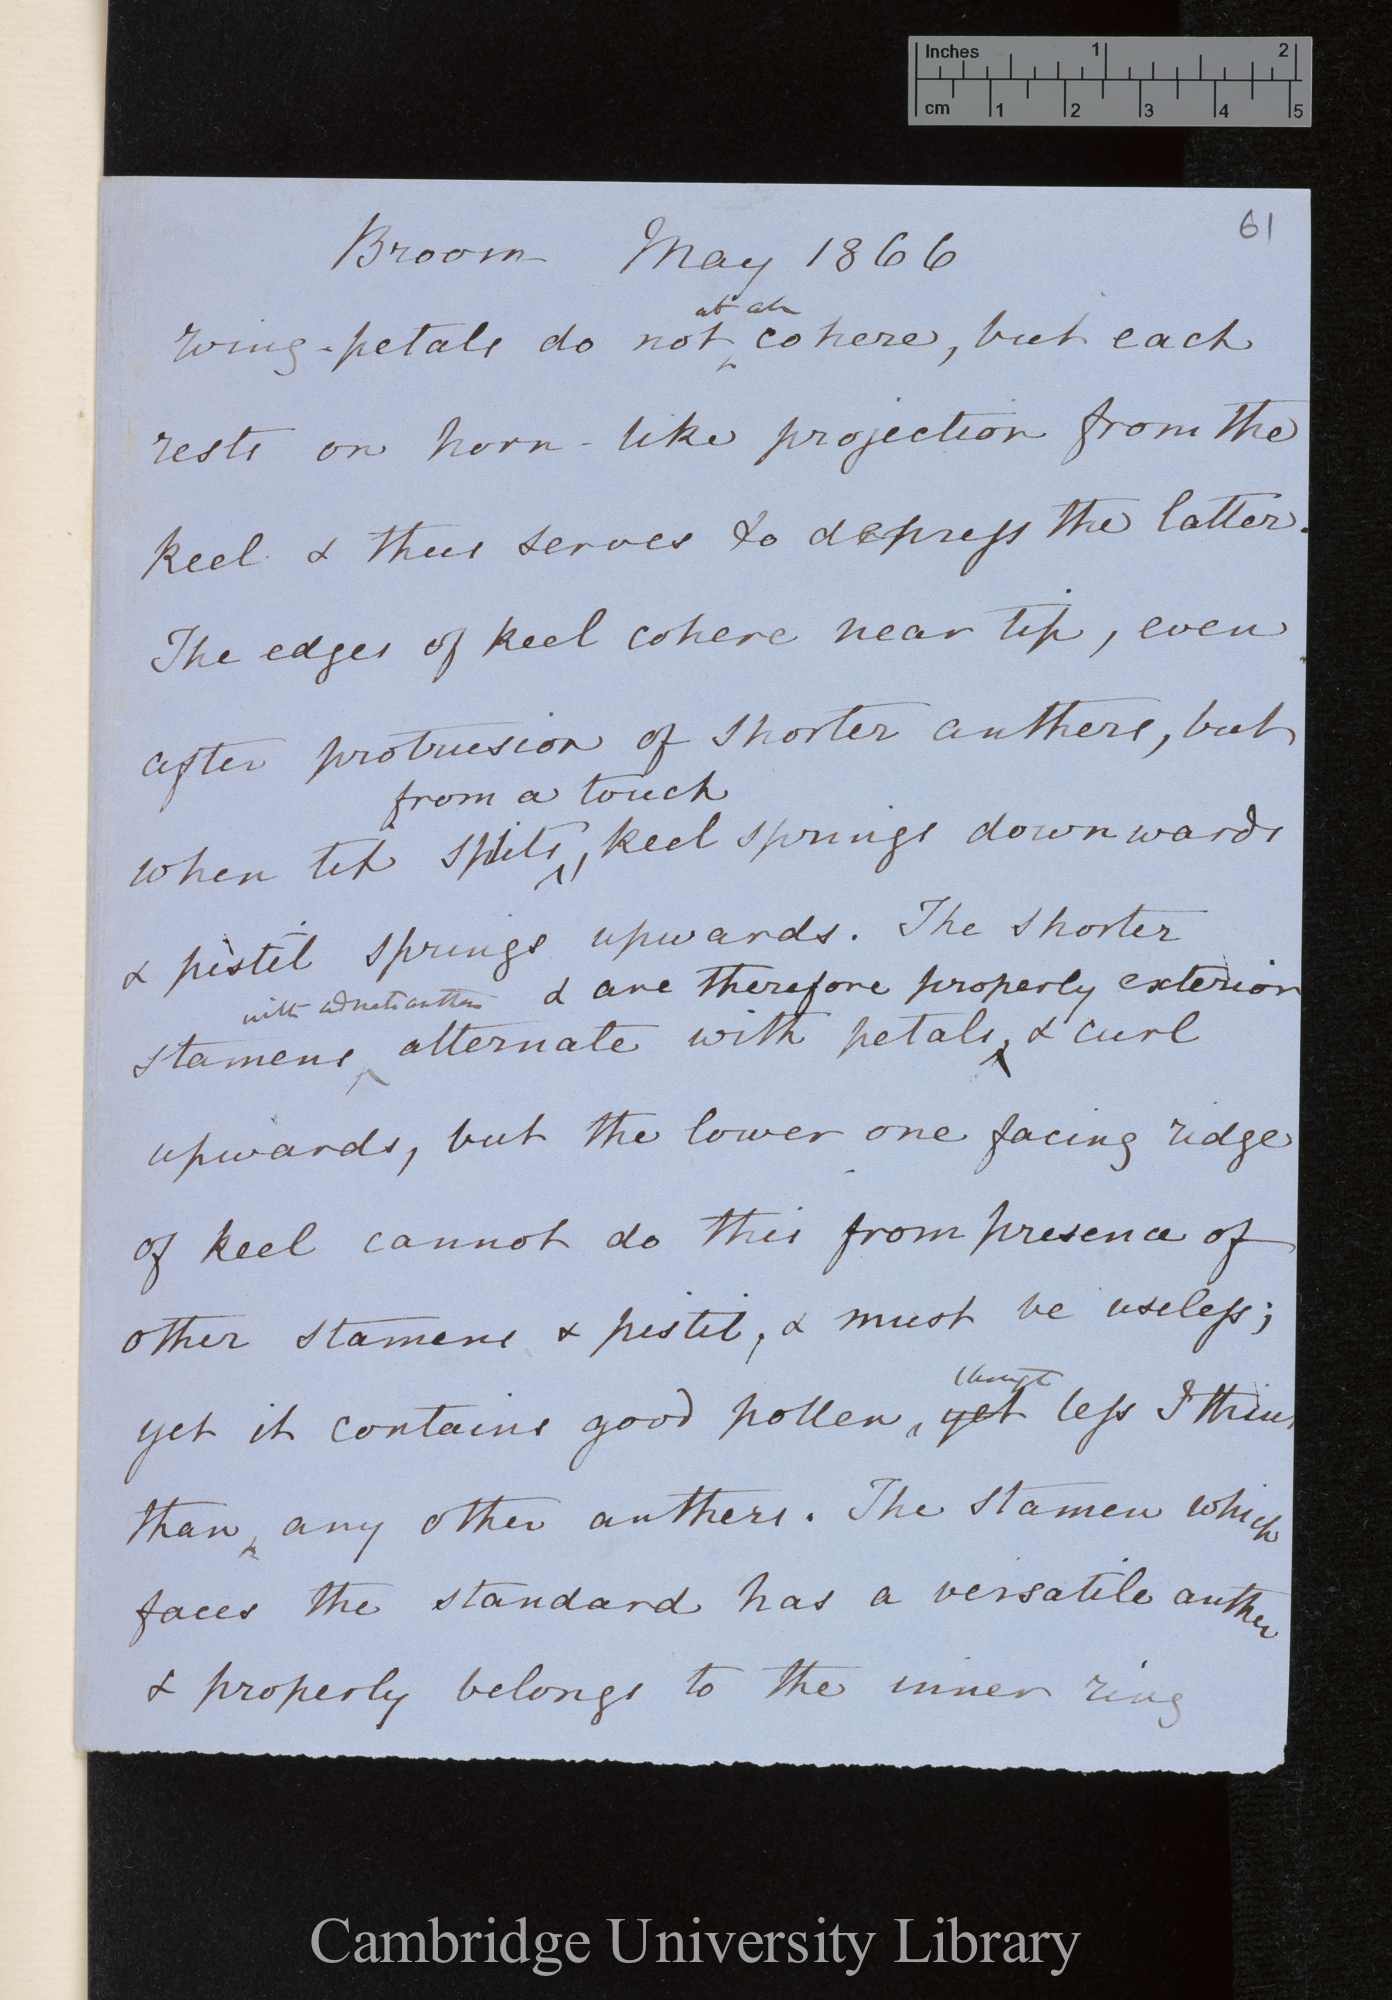 Inches 1 2
cm 1 2 3 4 5
61
Broom May 1866
at all
wing-petals do not cohere, but each
rests on horn-like projection from the
keel & thus serves to depress the latter.
The edges of keel cohere near tip, even
after protrusion of shorter anthers, but
from a touch
when tip splits, keel springs downwards
& pistil springs upwards. The shorter
with adnate anthers & are therefore properly exterior
stamens alternate with petals, & curl
upwards, but the lower one facing ridge
of keel cannot do this from presence of
other stamens & pistil, & must be useless;
though
yet it contains good pollen, yet less I think
than any other anthers. The stamen which
faces the standard has a versatile anther
& properly belongs to the inner ring
Cambridge University Library